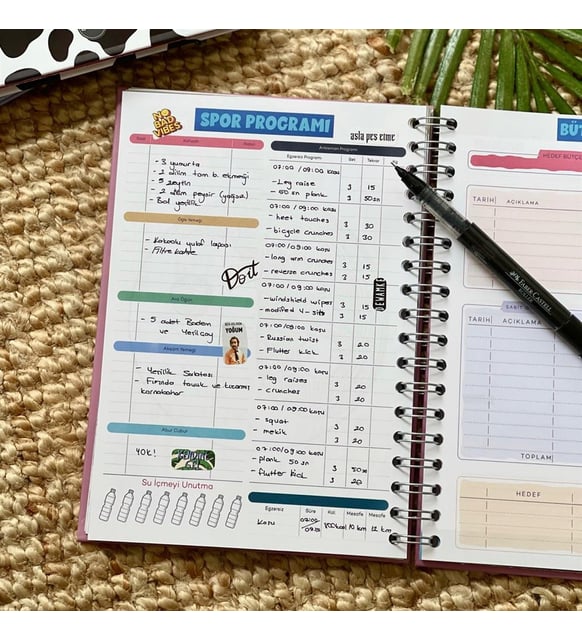 NO BAD VIBES
SPOR PROGRAMI
asla pes etme
Saat
Kahvaltı
Kalori
- 3 yumurta
- 2 dilim tam b. ekmeği
- 5 zeytin
- 2 dilim peynir (yağsız)
- Bol yeşillik
Öğle Yemeği
- Kakaolu yulaf lapası
- Filtre kahve
Do it
Ara Öğün
- 5 adet Badem
ve Yeşilçay
YOĞUN
Akşam Yemeği
- Yeşillik Salatası
- Fırında tavuk ve kızarmış
karnabahar
Abur Cubur
YOK!
Su İçmeyi Unutma
Antrenman Programı
Egzersiz Programı Set Tekrar
07:00 / 09:00 koşu
- Leg raise 3 15
- 60 sn plank 3 50sn
07:00 / 09:00 koşu
- heel touches 3 30
- bicycle crunches 3 30
07:00 / 09:00 koşu
- long arm crunches 3 15
- reverse crunches 3 15
07:00 / 09:00 koşu
- windshield wipes 3 15
- modified V-sits 3 15
DEVAMKE
07:00 / 09:00 koşu
- Russian twist 3 20
- Flutter kick 3 20
07:00 / 09:00 koşu
- leg raises 3 20
- crunches 3 20
07:00 / 09:00 koşu
- squat 3 20
- mekik 3 20
07:00 / 09:00 koşu
- plank 50 sn 3 50sn
- flutter kick 3 20
Egzersiz Süre Kal. Mesafe Mesafe
Koşu 07:00 10 km 12 km
BÜT
HEDEF BÜTÇE
TARİH AÇIKLAMA
FABER-CASTELL
SABİT
TARİH AÇIKLAMA
TOPLAM
HEDEF